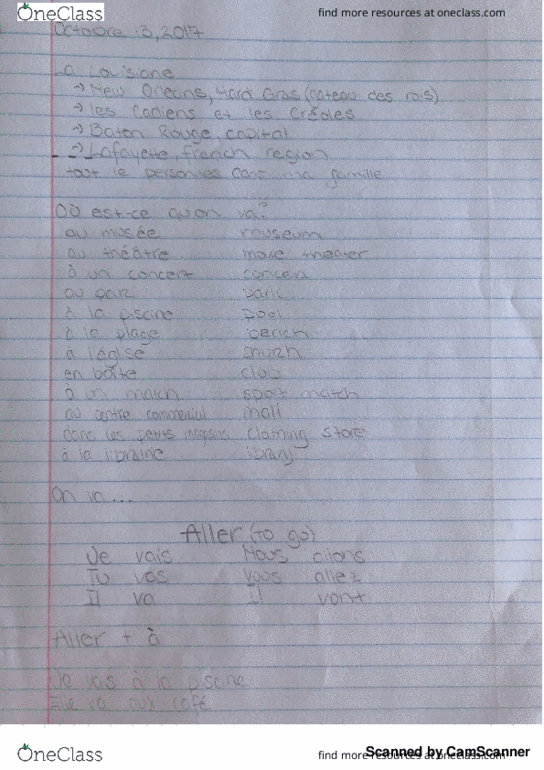 OneClass
find more resources at oneclass.com
Octobre 13, 2017
La Louisiane
→ New Orleans, Mardi Gras (gateau des rois)
→ les Cadiens et les Créoles
→ Baton Rouge, capital
→ Lafayette, french region
tout le personnes dans ma famille
Où est-ce qu'on va?
au musée museum
au théâtre movie theater
à un concert concert
au parc park
à la piscine pool
à la plage beach
à l'église church
en boîte club
à un match sport match
au centre commercial mall
dans les petits magasins clothing store
à la librairie library
On va...
Aller (to go)
Je vais Nous allons
Tu vas Vous allez
Il va Il vont
Aller + à
Je vais à la piscine
Elle va aux café
OneClass
find more resources at oneclass.com
Scanned by CamScanner